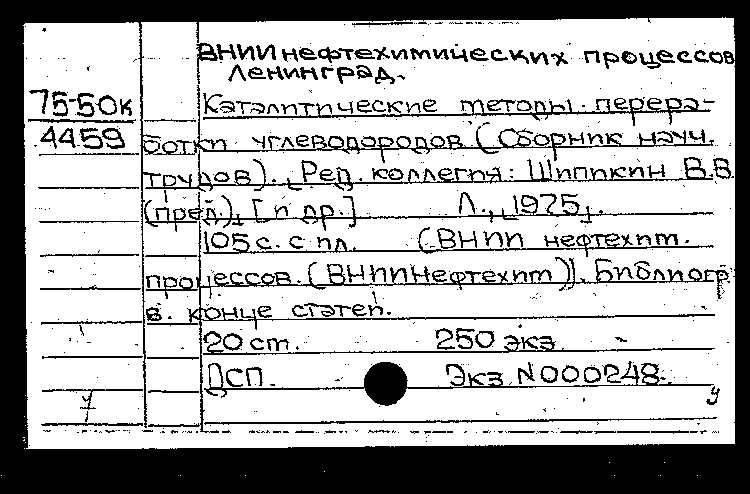 ВНИИ нефтехимических процессов
Ленинград.
75-50к
Каталитические методы перера-
4459
ботки углеводородов (Сборник науч.
трудов). Ред. коллегия: Шипикин В.В.
(пред.), [и др.] Л., 1975.
105 с. с ил. (ВНИИ нефтехим.
процессов. (ВНИИНефтехим)). Библиогр.
в конце статей.
20 см. 250 экз
ДСП. Экз N000248.
у